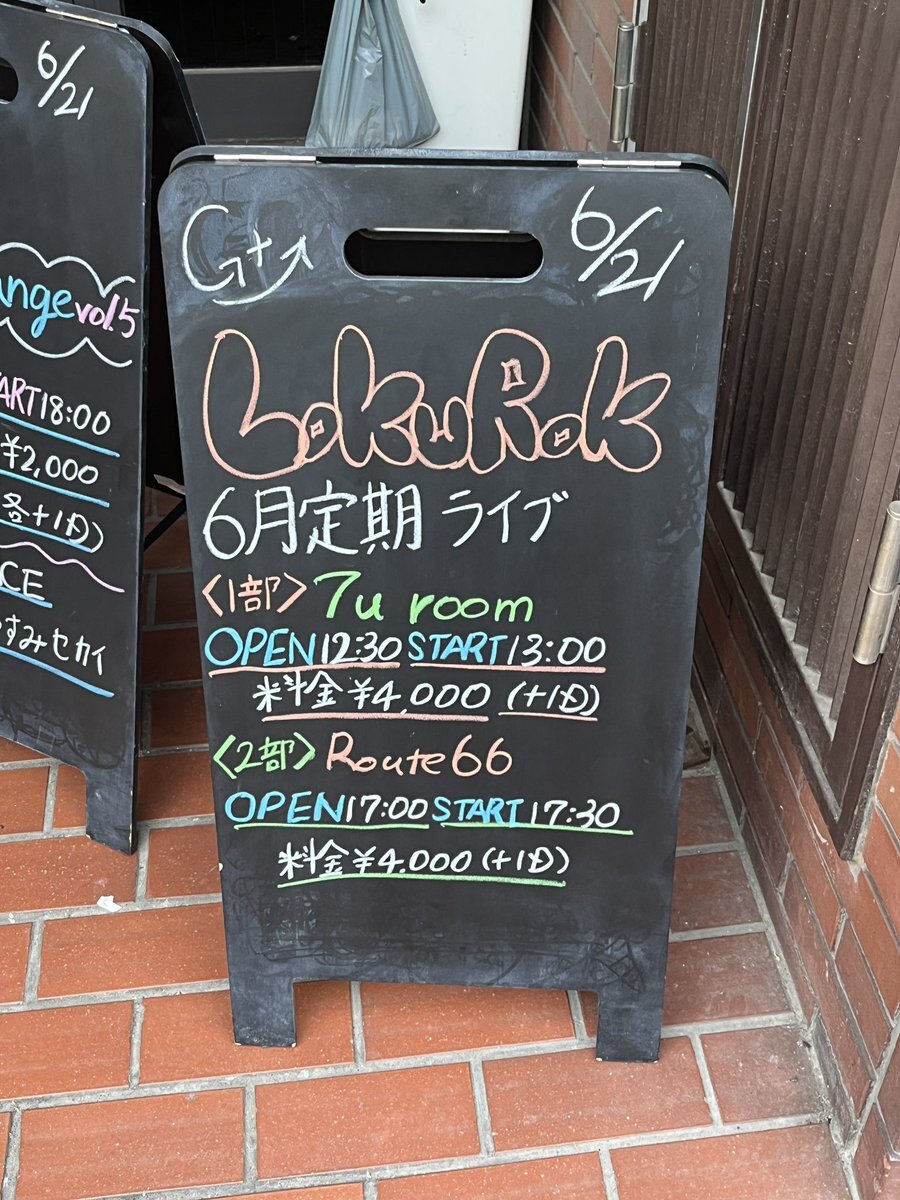 6/21
ange vol.5
ART 18:00
¥2,000
(各+1D)
CE
すみセカイ
G+
6/21
LokuRok
6月定期ライブ
<1部> 7u room
OPEN 12:30 START 13:00
料金 ¥4,000 (+1D)
<2部> Route66
OPEN 17:00 START 17:30
料金 ¥4,000 (+1D)